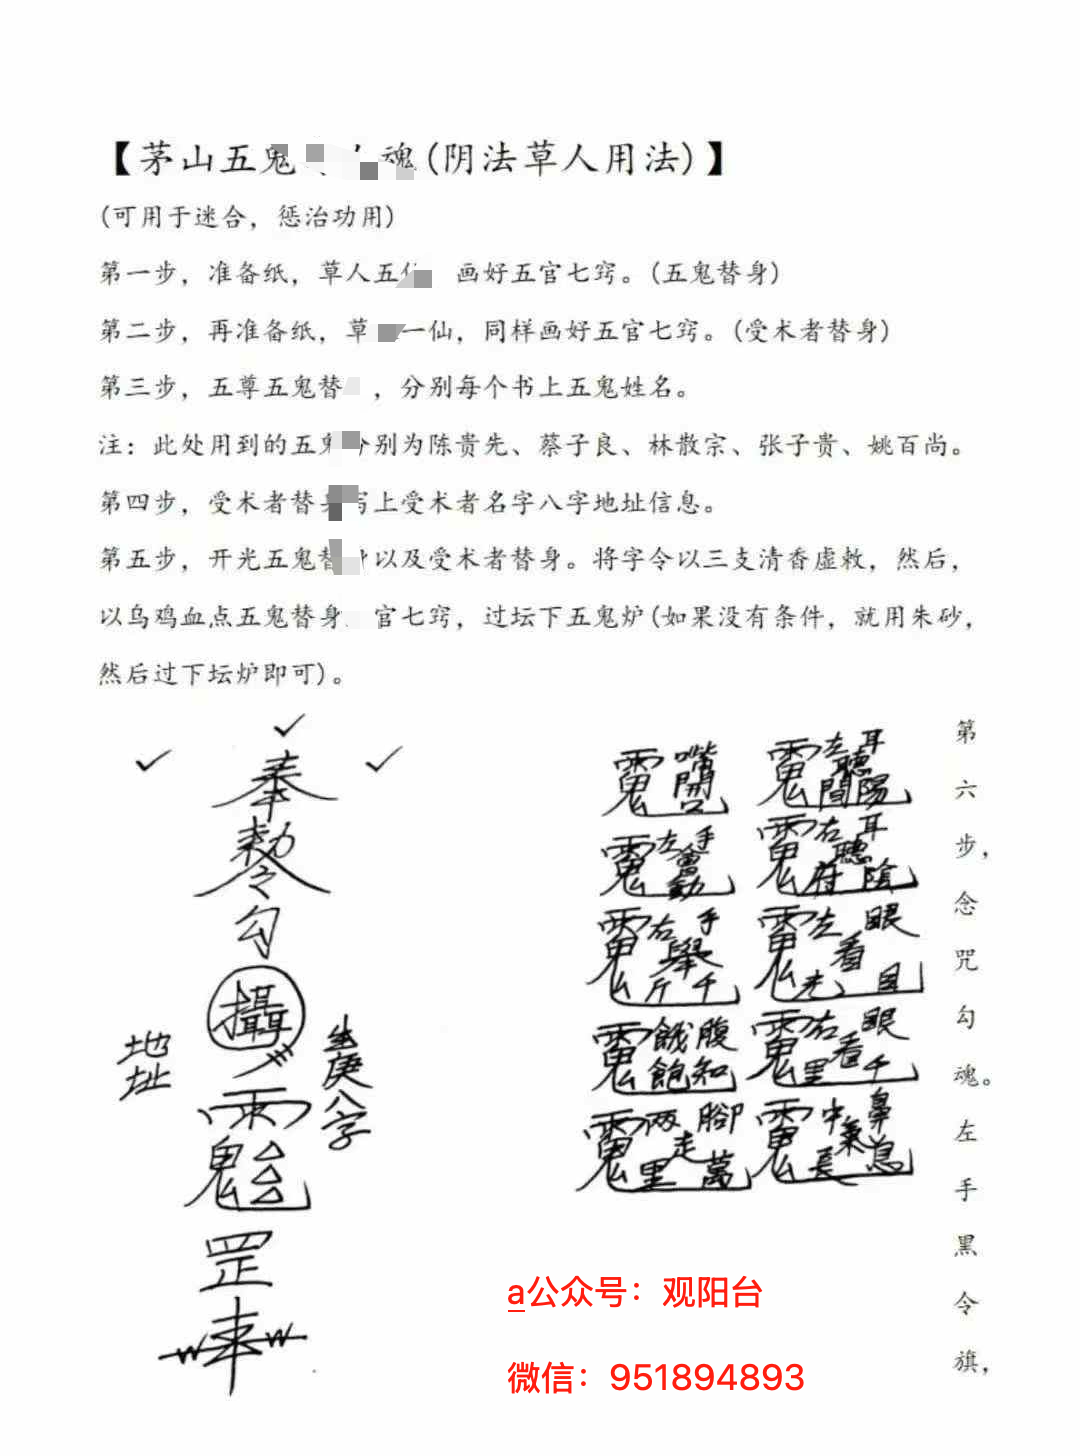 【茅山五鬼 魂(阴法草人用法)】
(可用于迷合，惩治功用)
第一步，准备纸，草人五 画好五官七窍。(五鬼替身)
第二步，再准备纸，草 一仙，同样画好五官七窍。(受术者替身)
第三步，五尊五鬼替 ，分别每个书上五鬼姓名。
注：此处用到的五鬼分别为陈贵先、蔡子良、林散宗、张子贵、姚百尚。
第四步，受术者替身写上受术者名字八字地址信息。
第五步，开光五鬼替身以及受术者替身。将字令以三支清香虚敕，然后，
以乌鸡血点五鬼替身 官七窍，过坛下五鬼炉(如果没有条件，就用朱砂，
然后过下坛炉即可)。
奉
勅令
勾
攝
地址
生庚八字
罡
嘴開
左耳聽陽間
左手會動
右耳聽陰府
右手舉千斤
左眼看
餓腹知飽
右眼看千里
两脚走萬里
鼻中氣息長
第六步，念咒勾魂。左手黑令旗，
a公众号：观阳台
微信：951894893